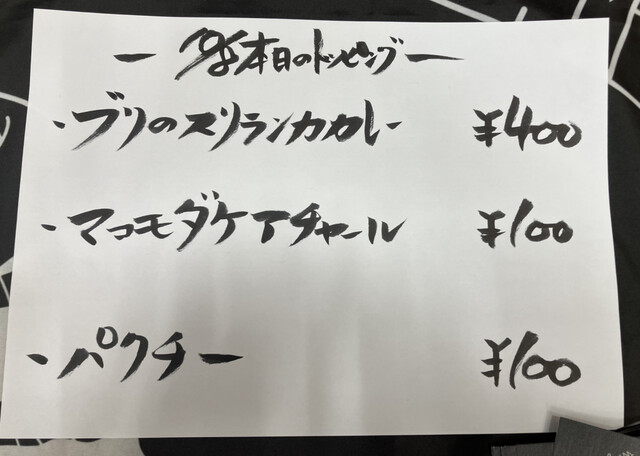 本日のトッピング
・ブリのスリランカカレー ¥400
・マコモダケアチャール ¥100
・パクチー ¥100